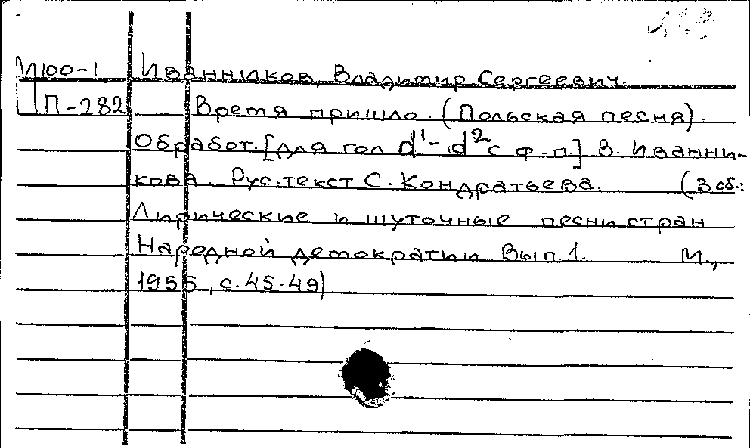 М100-1 Иванников, Владимир Сергеевич.
П-282 Время пришло. (Польская песня).
Обработ. [для гол d¹-d² с ф-п.] В. Иванни-
кова. Рус. текст С. Кондратьева. (В сб.:
Лирические и шуточные песни стран
Народной демократии Вып 1. М.,
1955, с. 45-49)